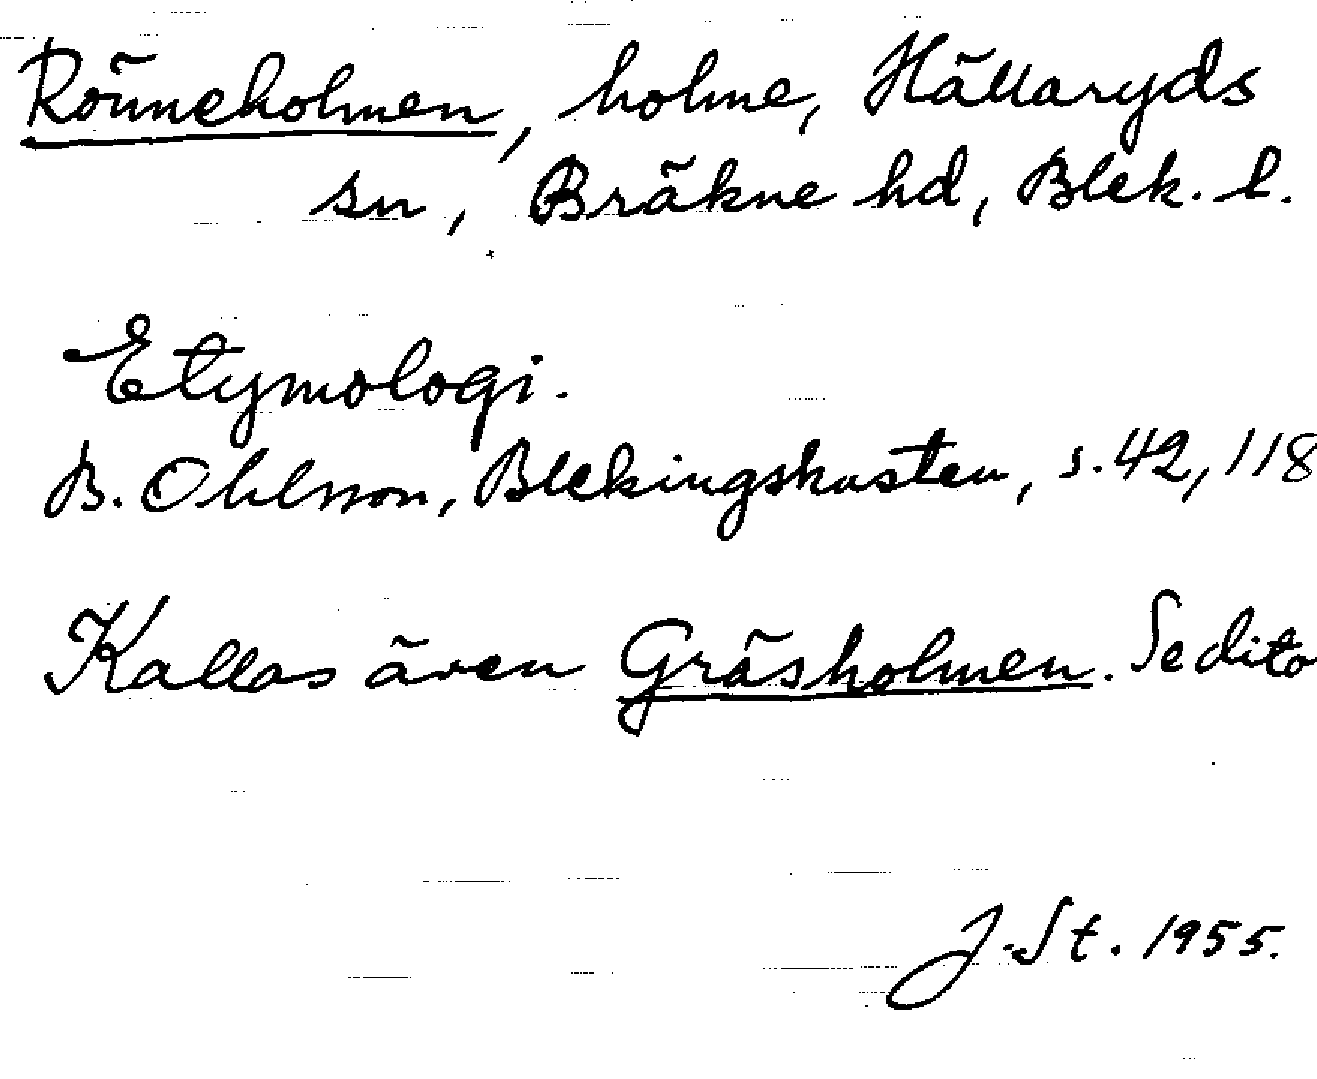 Rönneholmen, holme, Hällaryds
sn, Bräkne hd, Blek. l.
Etymologi.
B. Ohlsson, Blekingskusten, s. 42, 118
Kallas även Gräsholmen. Se dito
J. St. 1955.